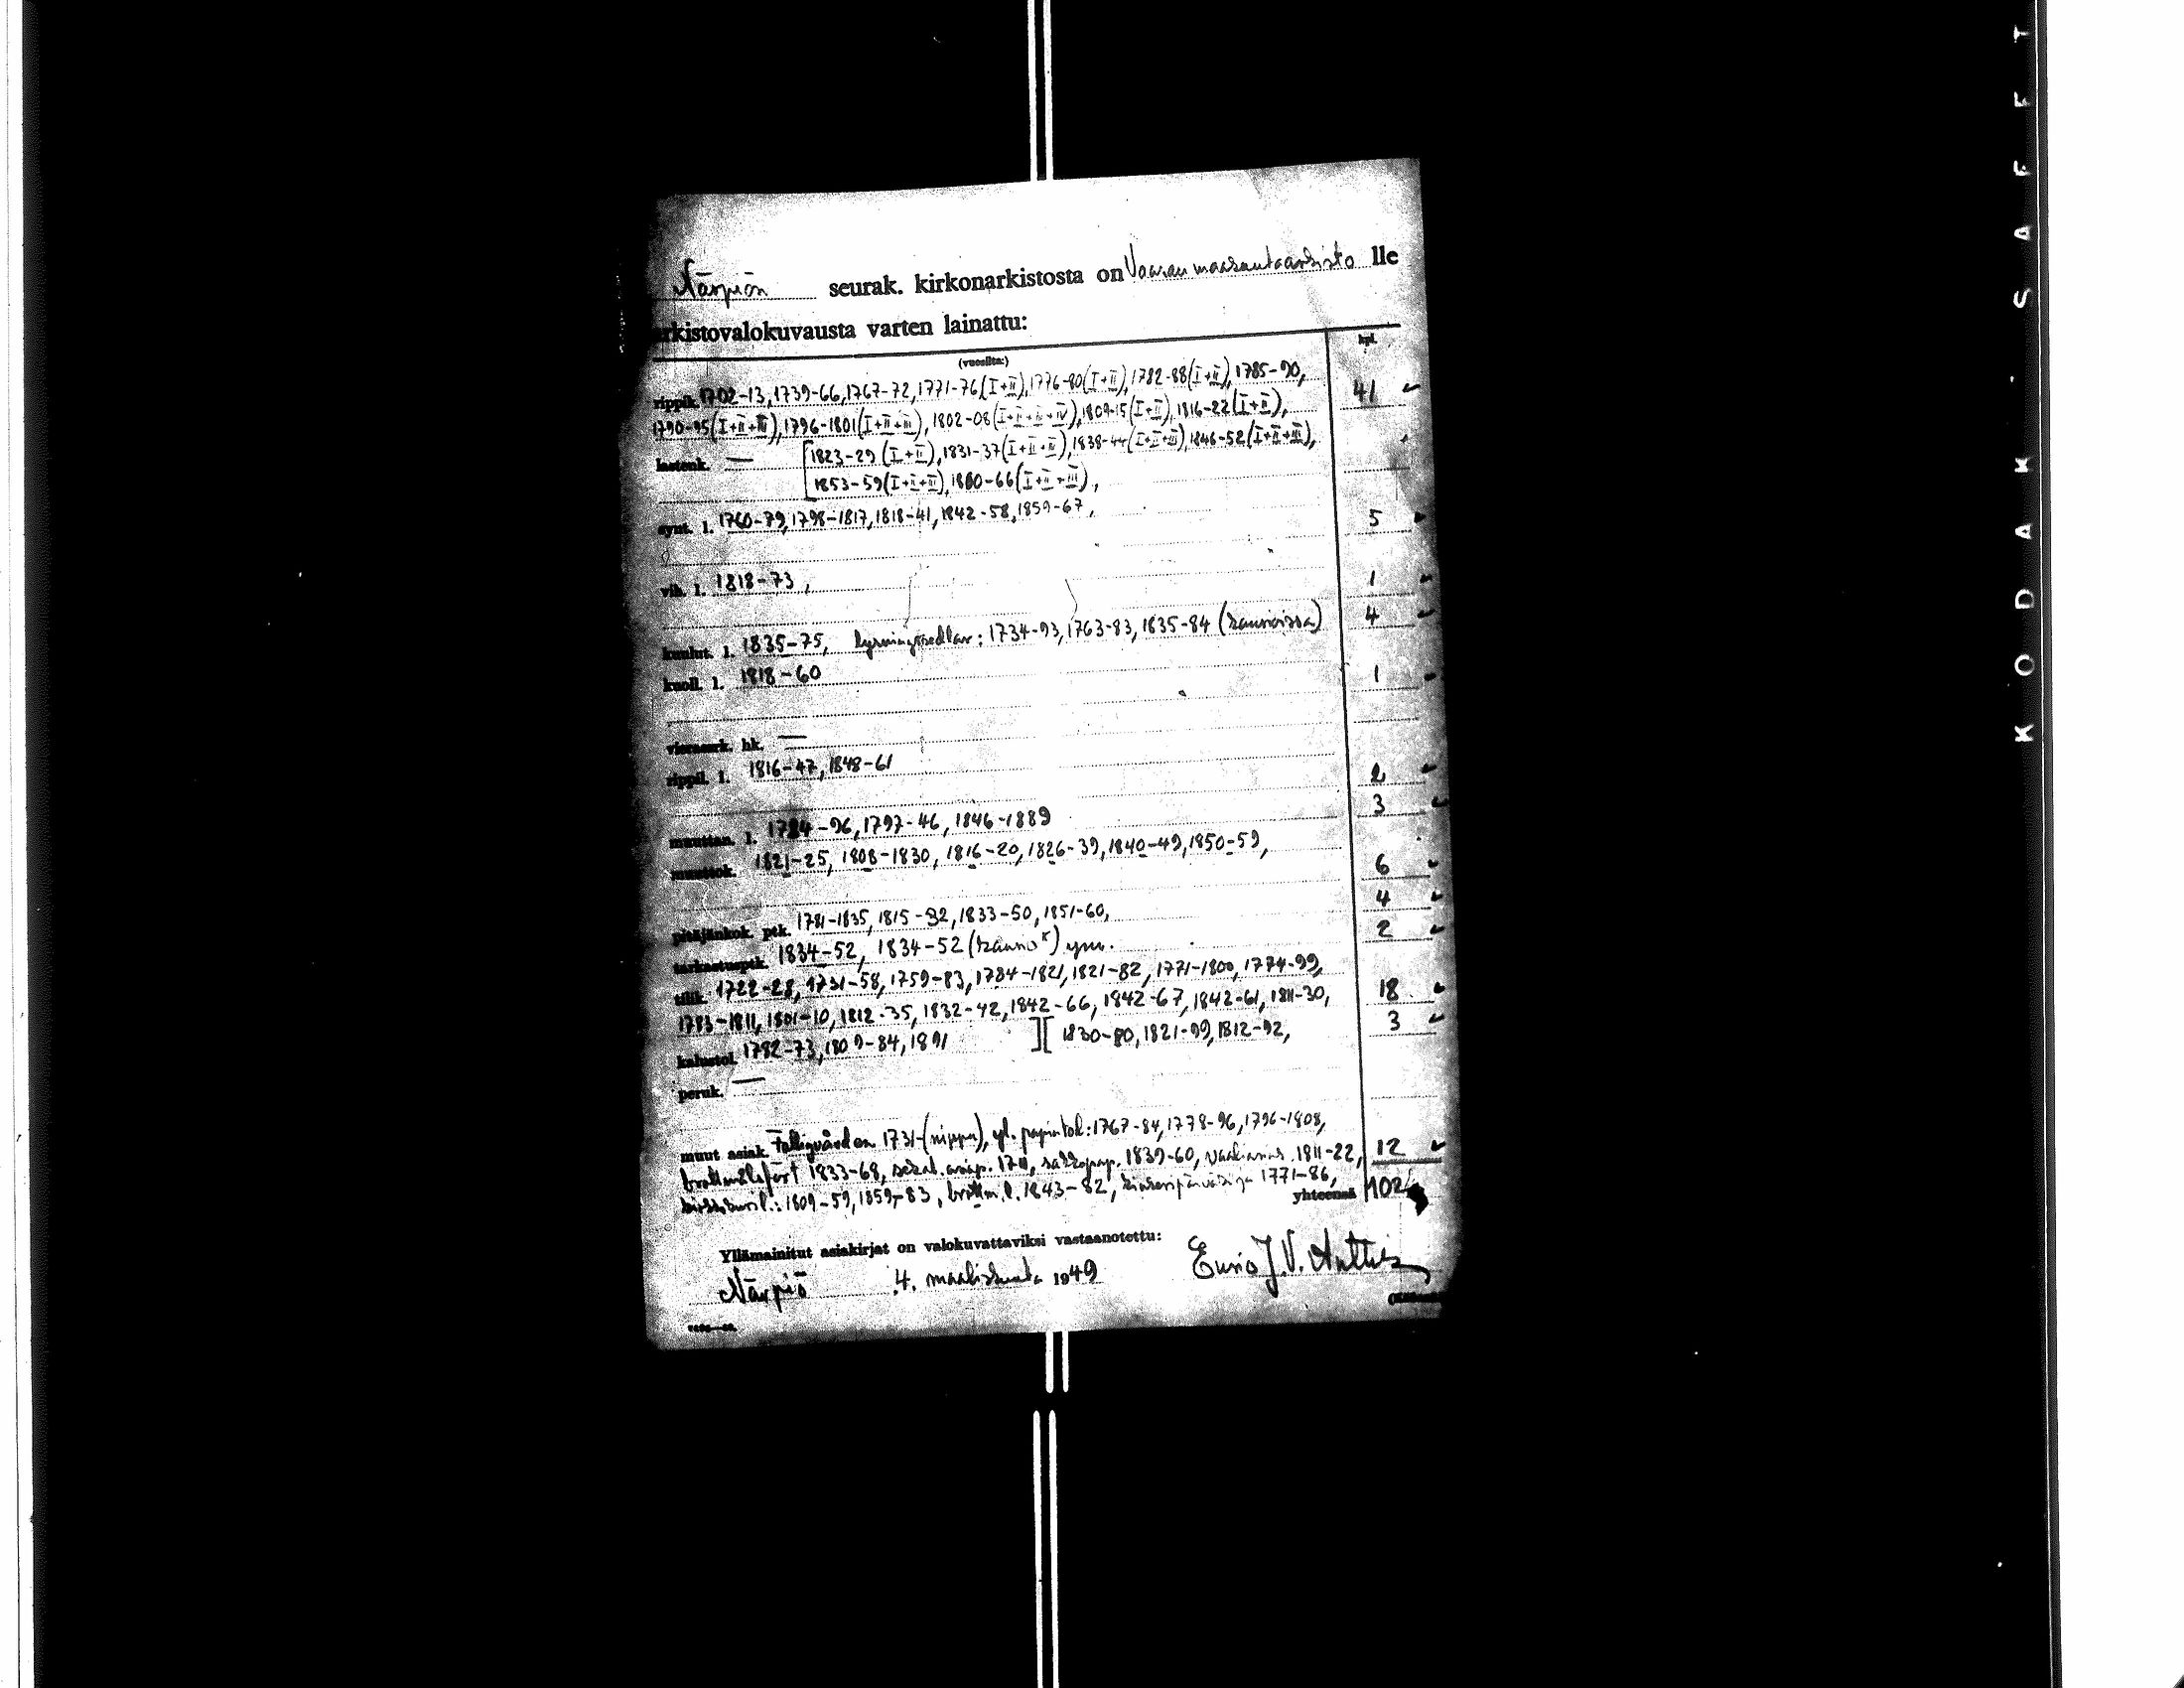 Närpiön seurak. kirkonarkistosta on Vaasan maakuntaarkisto lle
arkistovalokuvausta varten lainattu:
(vuosilta:) kpl.
rippik. 1702-13, 1739-66, 1767-72, 1771-76 (I+II), 1776-80 (I+II), 1782-88 (I+II), 1785-90, 41
1790-95 (I+II+III), 1796-1801 (I+II+III), 1802-08 (I+II+III+IV), 1809-15 (I+II), 1816-22 (I+II),
lastenk. — [1823-29 (I+II), 1831-37 (I+II+III), 1838-44 (I+II+III), 1846-52 (I+II+III),
1853-59 (I+II+III), 1860-66 (I+II+III),
synt. l. 1760-79, 1798-1817, 1818-41, 1842-58, 1859-67, 5
vih. l. 1818-73, 1
kuulut. l. 1835-75, lysningssedlar: 1734-93, 1763-83, 1835-84 (kansioissa) 4
kuoll. l. 1818-60 1
vierasrk. hk. —
rippil. l. 1816-47, 1848-61 2
muuttan. l. 1784-96, 1797-46, 1846-1889 3
muuttok. 1821-25, 1808-1830, 1816-20, 1826-39, 1840-49, 1850-59, 6
pitäjänkok. ptk. 1781-1835, 1815-32, 1833-50, 1851-60, 4
tarkastusptk. 1834-52, 1834-52 (kansio) ym. 2
tilik. 1722-28, 1731-58, 1759-83, 1784-1821, 1821-82, 1771-1800, 1774-99,
1783-1811, 1801-10, 1812-35, 1832-42, 1842-66, 1842-67, 1842-61, 1811-30, 18
kalustol. 1782-73, 1809-84, 1891 ][ 1830-80, 1821-99, 1812-92, 3
peruk. —
muut asiak. Fattigvården 1731-(nippu), yl. papintod: 1767-84, 1778-96, 1796-1808,
1833-68, 1839-60, 1811-22, 12
1809-59, 1859-83, 1843-82, 1771-86,
yhteensä 102
Yllämainitut asiakirjat on valokuvattaviksi vastaanotettu:
Närpiö 4. maaliskuuta 1949 J.V.
KODAK SAFET